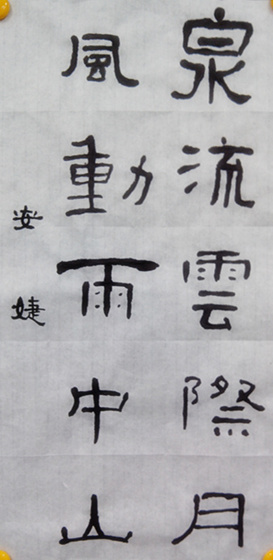 泉流雲際月
風動雨中山
安婕